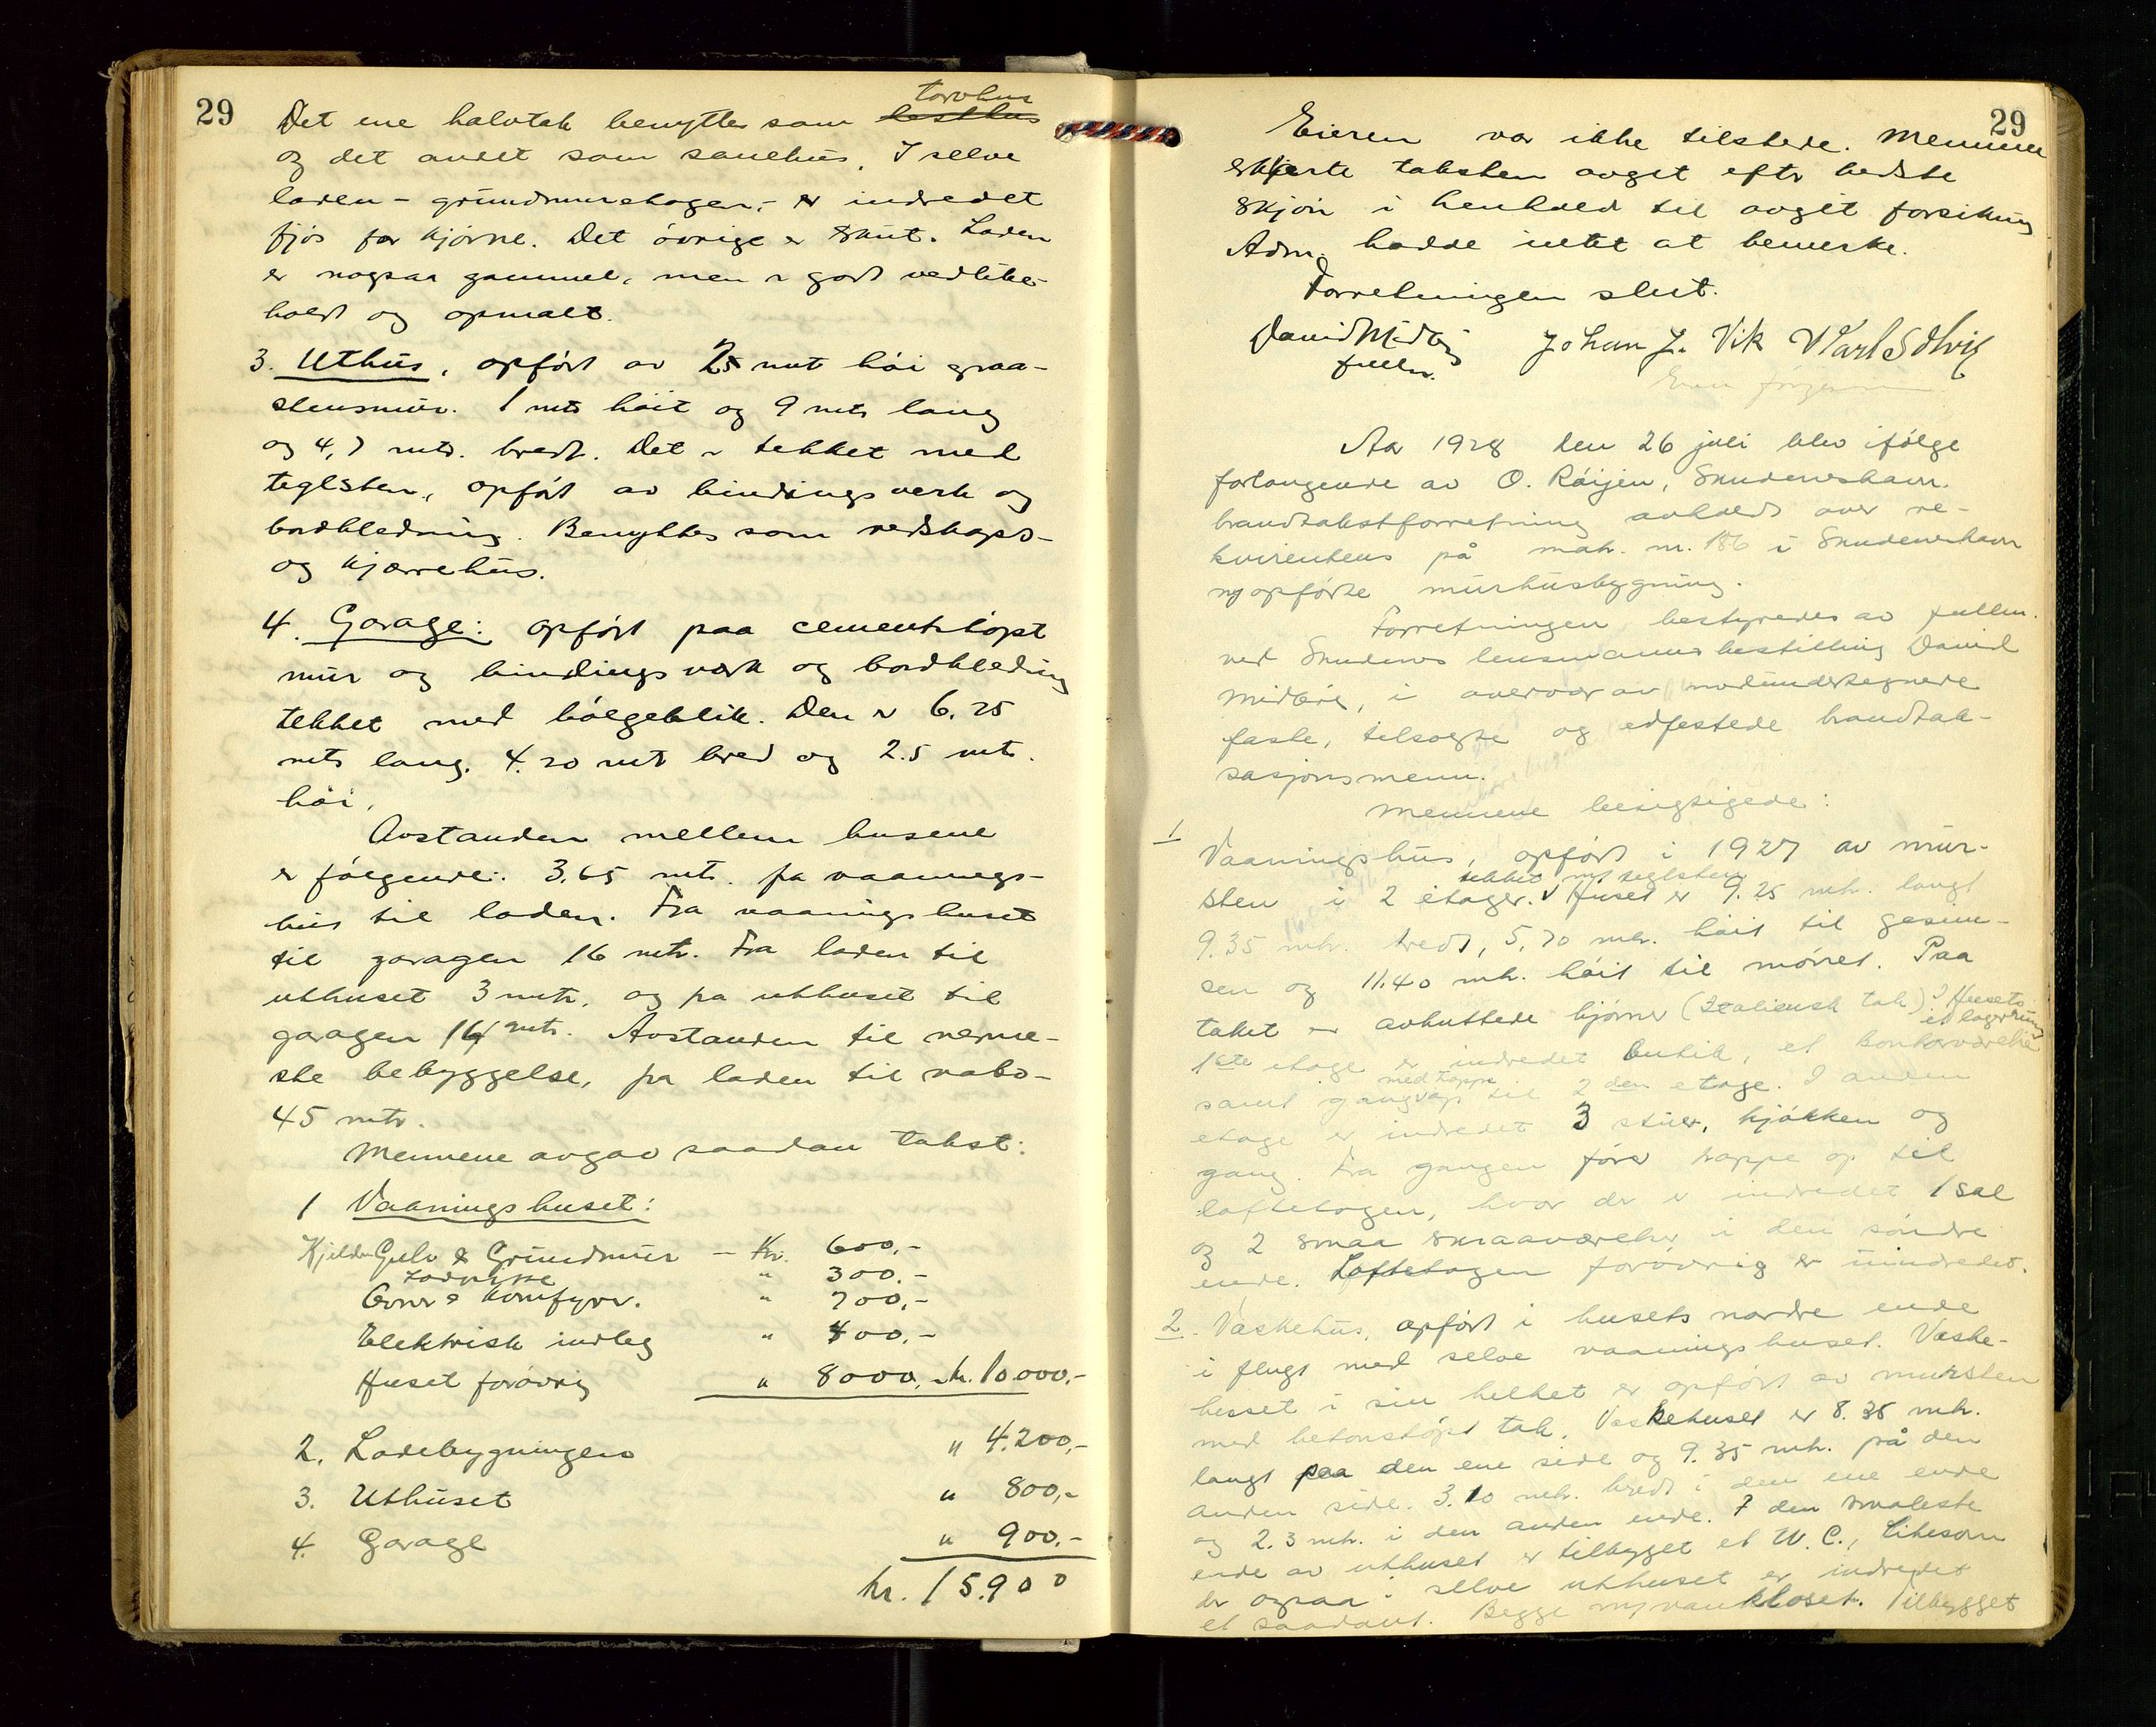 29
Det ene halvtak benyttes som torvhus
og det andet som sauehus. I selve
laden - grundmuretagen, - er indredet
fjøs for kjørne. Det øvrige er skut. Laden
er nogsaa gammel, men er godt vedlike-
holdt og opmalt.
3. Uthus, opført av 25 mtr høi graa-
stensmur. 1 mtr høit og 9 mtr lang
og 4,7 mtr. bredt. Det er tekket med
teglsten, opført av bindingsverk og
bordkledning. Benyttes som redskaps-
og kjærrehus.
4. Garage: opført paa cementstøpt
mur og bindingsverk og bordkledning
tekket med bølgeblik. Den er 6.25
mtr lang, 4.20 mtr bred og 2.5 mtr.
høi.
Avstanden mellem husene
er følgende: 3.65 mtr. fra vaanings-
hus til laden. Fra vaaningshuset
til garagen 16 mtr. Fra laden til
uthuset 3 mtr, og fra uthuset til
garagen 14 mtr. Avstanden til nerme-
ste bebyggelse, fra laden til nabo-
45 mtr.
Mennene avgav saadan takst:
1 Vaaningshuset:
Kjelder Gulv & Grundmur - Kr. 600,-
Jordpipe " 300.-
Ovner & Komfyrer. " 700,-
Elektrisk indleg " 400,-
Huset forøvrig " 8000,- kr. 10.000,-
2. Ladebygningen " 4.200,-
3. Uthuset " 800,-
4. Garage " 900.-
kr. 15.900
29
Eieren var ikke tilstede. Mennene
erklærte taksten avget efter bedste
skjøn i henhold til avgit forsikring
Adm. hadde intet at bemerke.
Forretningen slut.
David Midbøe Johan J. Vik Karl Solvig
fullm.
Aar 1928 den 26 juli blev ifølge
forlangende av O. Røijen, Skudeneshavn.
brandtakstforretning avholdt over re-
kvirentens på matr. nr. 186 i Skudeneshavn
nyopførte murhusbygning.
Forretningen bestyredes av fullm.
ved Skudenes lensmannsbestilling David
Midbøe, i overvær av medundertegnede
faste, tilsagte og edfestede brandtak-
sasjonsmenn.
Mennene besigtigede:
1 Vaaningshus, opført i 1927 av mur-
tekket med teglsten
sten i 2 etager. Huset er 9.25 mtr. langt
9.35 mtr. bredt, 5,70 mtr. høit til gesim-
sen og 11.40 mtr. høit til mønet. Paa
taket er avkuttede hjørner (Italiensk tak) I Husets
et lagerrum,
1ste etage er indredet butik, et kontorværelse
med trappe
samt gang op til 2den etage. I anden
etage er indredet 3 stuer, kjøkken og
gang. Fra gangen fører trappe op til
loftetagen, hvor der er indredet 1 sal
og 2 smaa smaaværelser i den søndre
ende. Loftetagen forøvrig er uindredet.
2. Vaskehus, opført i husets nordre ende
i flugt med selve vaaningshuset. Vaske-
husset i sin helhet er opført av mursten
med betonstøpt tak. Vaskehuset er 8.35 mtr.
langt paa den ene side og 9.35 mtr. på den
anden side. 3.10 mtr. bredt i den ene ende
og 2.3 mtr. i den anden ende. I den smaleste
ende av uthuset er tilbygget et W.C., likesom
der ogsaa i selve uthuset er indredet
et saadant. Begge m/ vannkloset. Tilbygget